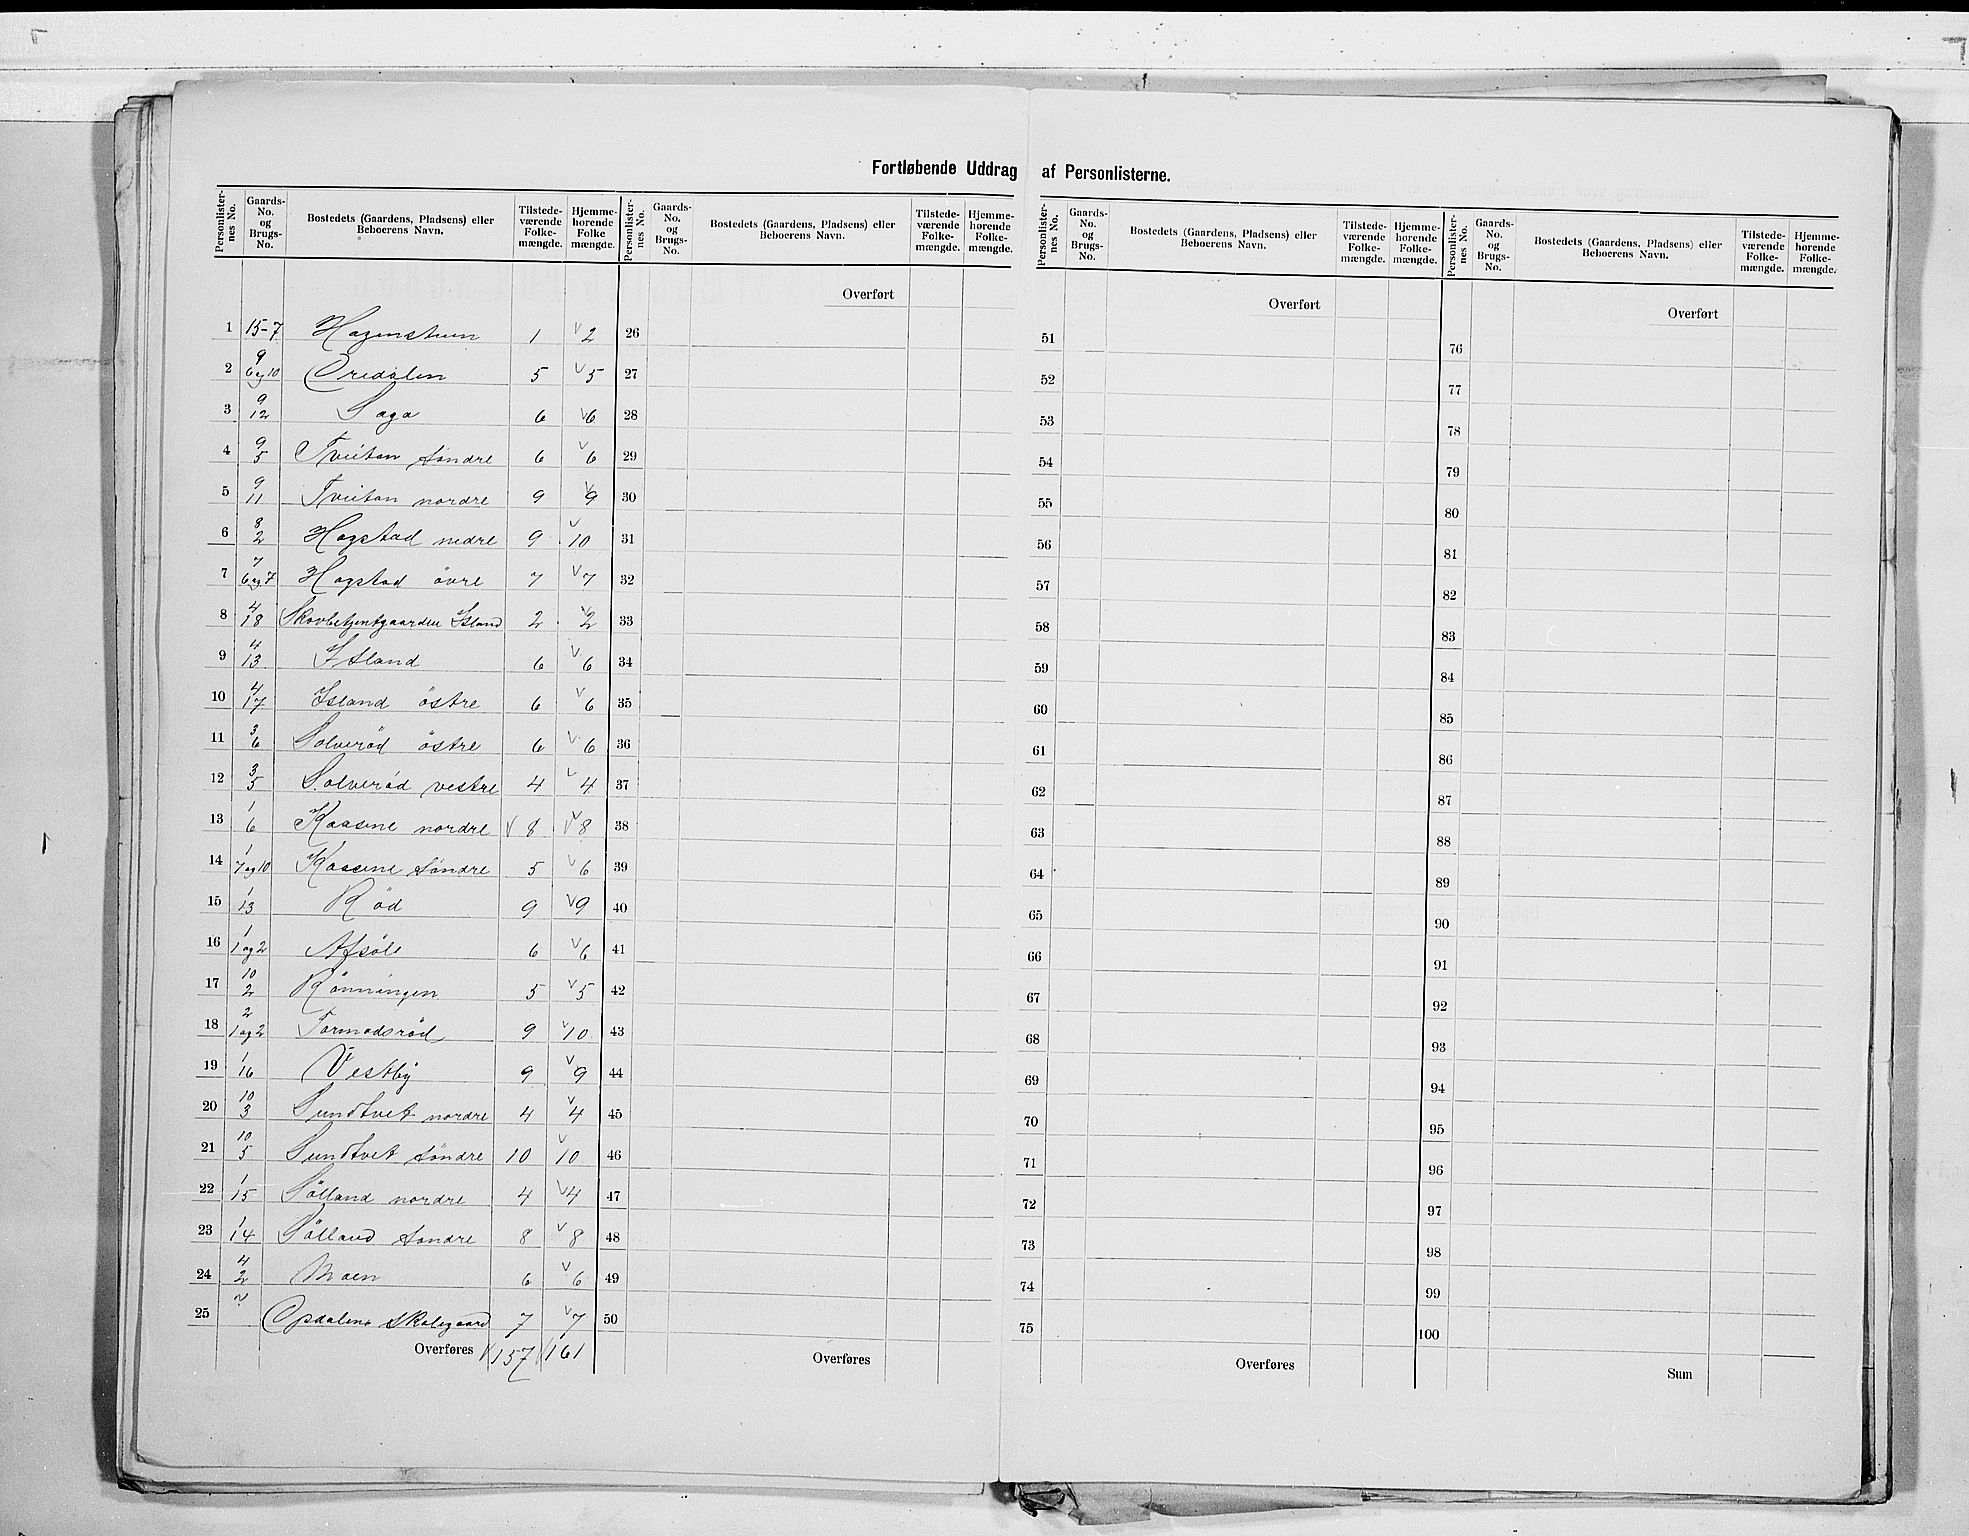 Fortløbende Uddrag af Personlisterne.
Personlister-nes No. Gaards-No. og Brugs-No. Bostedets (Gaardens, Pladsens) eller Beboerens Navn. Tilstede-værende Folke-mængde. Hjemme-hørende Folke mængde. Personlister-nes No. Gaards-No. og Brugs-No. Bostedets (Gaardens, Pladsens) eller Beboerens Navn. Tilstede-værende Folke-mængde. Hjemme-hørende Folke-mængde. Personlister-nes No. Gaards-No. og Brugs-No. Bostedets (Gaardens, Pladsens) eller Beboerens Navn. Tilstede-værende Folke-mængde. Hjemme-hørende Folke-mængde. Personlister-nes No. Gaards-No. og Brugs-No. Bostedets (Gaardens, Pladsens) eller Beboerens Navn. Tilstede-værende Folke-mængde. Hjemme-hørende Folke-mængde.
Overført Overført Overført
1 15-7 1 v 2 26 51 76
2 9 6 og 10 Oredalen 5 v 5 27 52 77
3 9 12 Saga 6 v 6 28 53 78
4 9 5 Tveitan söndre 6 v 6 29 54 79
5 9 11 Tveitan nordre 9 v 9 30 55 80
6 8 2 Hogstad nedre 9 v 10 31 56 81
7 7 6 og 7 Hogstad övre 7 v 7 32 57 82
8 4 18 Skovbetjentgaarden Island 2 v 2 33 58 83
9 4 13 Island 6 v 6 34 59 84
10 4 17 Island östre 6 v 6 35 60 85
11 3 6 Solveröd östre 6 v 6 36 61 86
12 3 5 Solveröd vestre 4 v 4 37 62 87
13 1 6 Kaasene nordre v 8 v 8 38 63 88
14 1 7 og 10 Kaasene söndre 5 v 6 39 64 89
15 1 13 Röd 9 v 9 40 65 90
16 1 1 og 2 6 v 6 41 66 91
17 10 2 Rönningen 5 v 5 42 67 92
18 2 1 og 2 Tormodsröd 9 v 10 43 68 93
19 1 16 Vestby 9 v 9 44 69 94
20 10 3 Sundtvet nordre 4 v 4 45 70 95
21 10 5 Sundtvet söndre 10 v 10 46 71 96
22 1 15 Sölland nordre 4 v 4 47 72 97
23 1 14 Sölland söndre 8 v 8 48 73 98
24 4 2 Moen 6 v 6 49 74 99
25 Opdalens Skolegaard 7 v 7 50 75 100
Overføres 157 161 Overføres Overføres Sum